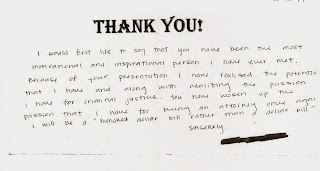 THANK YOU!
I would first like to say that you have been the most
motivational and inspirational person I have ever met.
Because of your presentation I have realized the potential
that I have and along with realizing the passion
I have for criminal justice. You have woken up the
passion that I have for being an attorney once again
I will be a "hundred dollar bill rather than a dollar bill"
sincerely,